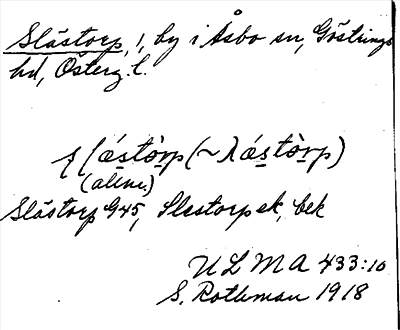 Slästorp, 1, by i Åsbo sn, Göstrings
hd, Österg. l.
(~λástòrp)
(allm.)
Slästorp G45, Slestorp ek, bek
ULMA 433:10
S. Rothman 1918